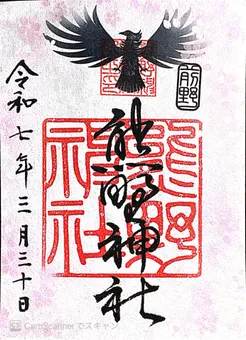 前野
熊野神社
熊野神社
令和七年三月三十日
CamScanner でスキャン